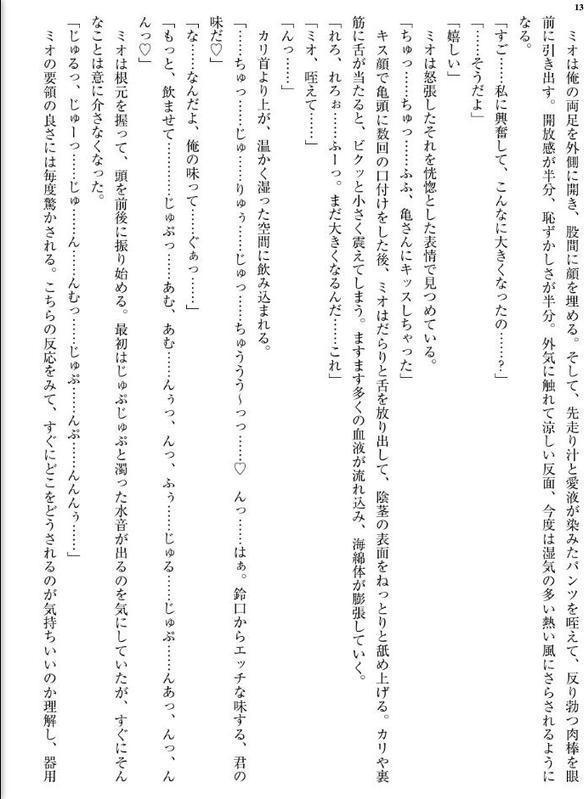 13
　ミオは俺の両足を外側に開き、股間に顔を埋める。そして、先走り汁と愛液が染みたパンツを咥えて、反り勃つ肉棒を眼
前に引き出す。開放感が半分、恥ずかしさが半分。外気に触れて涼しい反面、今度は湿気の多い熱い風にさらされるように
なる。
「すご……私に興奮して、こんなに大きくなったの……？」
「……そうだよ」
「嬉しい」
　ミオは怒張したそれを恍惚とした表情で見つめている。
「ちゅっ……ちゅっ……ふふ、亀さんにキッスしちゃった」
　キス顔で亀頭に数回の口付けをした後、ミオはだらりと舌を放り出して、陰茎の表面をねっとりと舐め上げる。カリや裏
筋に舌が当たると、ビクッと小さく震えてしまう。ますます多くの血液が流れ込み、海綿体が膨張していく。
「れろ、れろぉ……ふーっ。まだ大きくなるんだ……これ」
「ミオ、咥えて……」
「んっ……」
　カリ首より上が、温かく湿った空間に飲み込まれる。
「……ちゅっ……じゅ……りゅぅ……じゅっ……ちゅううう～っっ……♡　んっ……はぁ。鈴口からエッチな味する、君の
味だ♡」
「な……なんだよ、俺の味って……ぐぁっ……」
「もっと、飲ませて…………じゅぷっ……あむ、あむ……んぅっ、んっ、ふぅ……じゅる……じゅぷ……んあっ、んっ、ん
んっ♡」
　ミオは根元を握って、頭を前後に振り始める。最初はじゅぷじゅぷと濁った水音が出るのを気にしていたが、すぐにそん
なことは意に介さなくなった。
「じゅるっ、じゅーっ……じゅ……ん……んむっ……じゅぷ……んぷ……んんんぅ……」
　ミオの要領の良さには毎度驚かされる。こちらの反応をみて、すぐにどこをどうされるのが気持ちいいのか理解し、器用